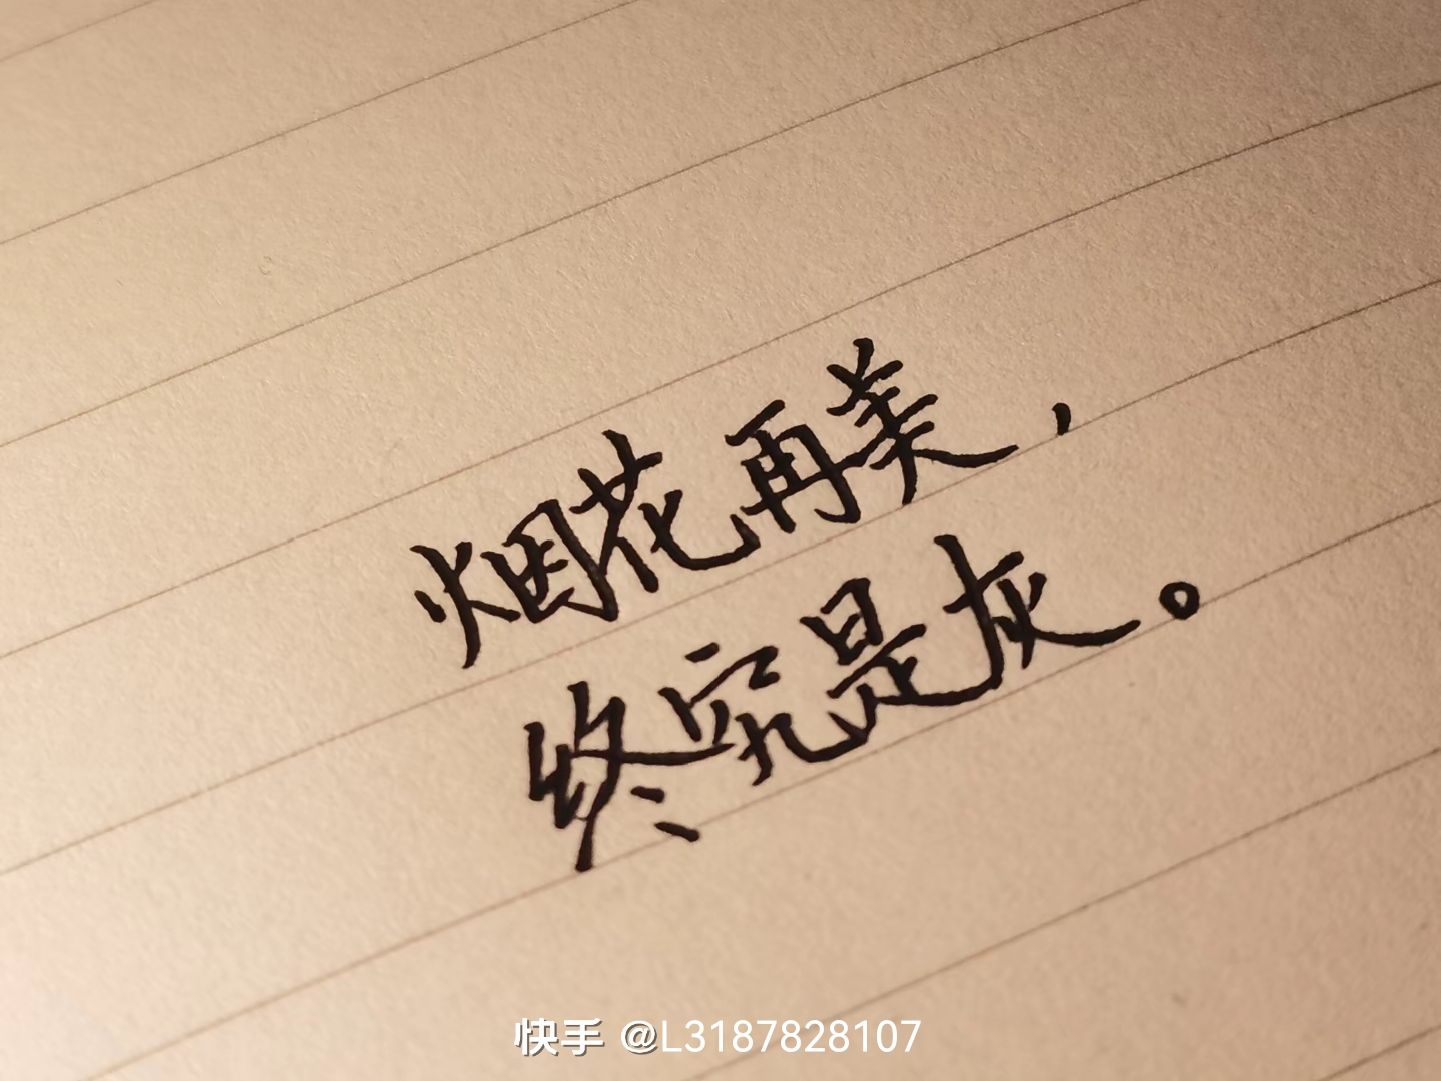 烟花再美，
终究是灰。
快手 @L3187828107